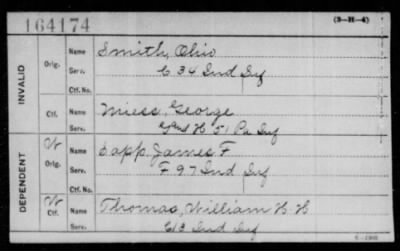 164174
(3-H-4)
INVALID
Orig.
Name Smith, Ohio
Serv. C 34 Ind Inf
Ctf. No.
Ctf.
Name Miess, George
Serv. H 51 Pa Inf
DEPENDENT
Orig.
Name Sapp James F
Serv. F 97 Ind Inf
Ctf. No.
Ctf.
Name Thomas, William H H
Serv. Ind Inf